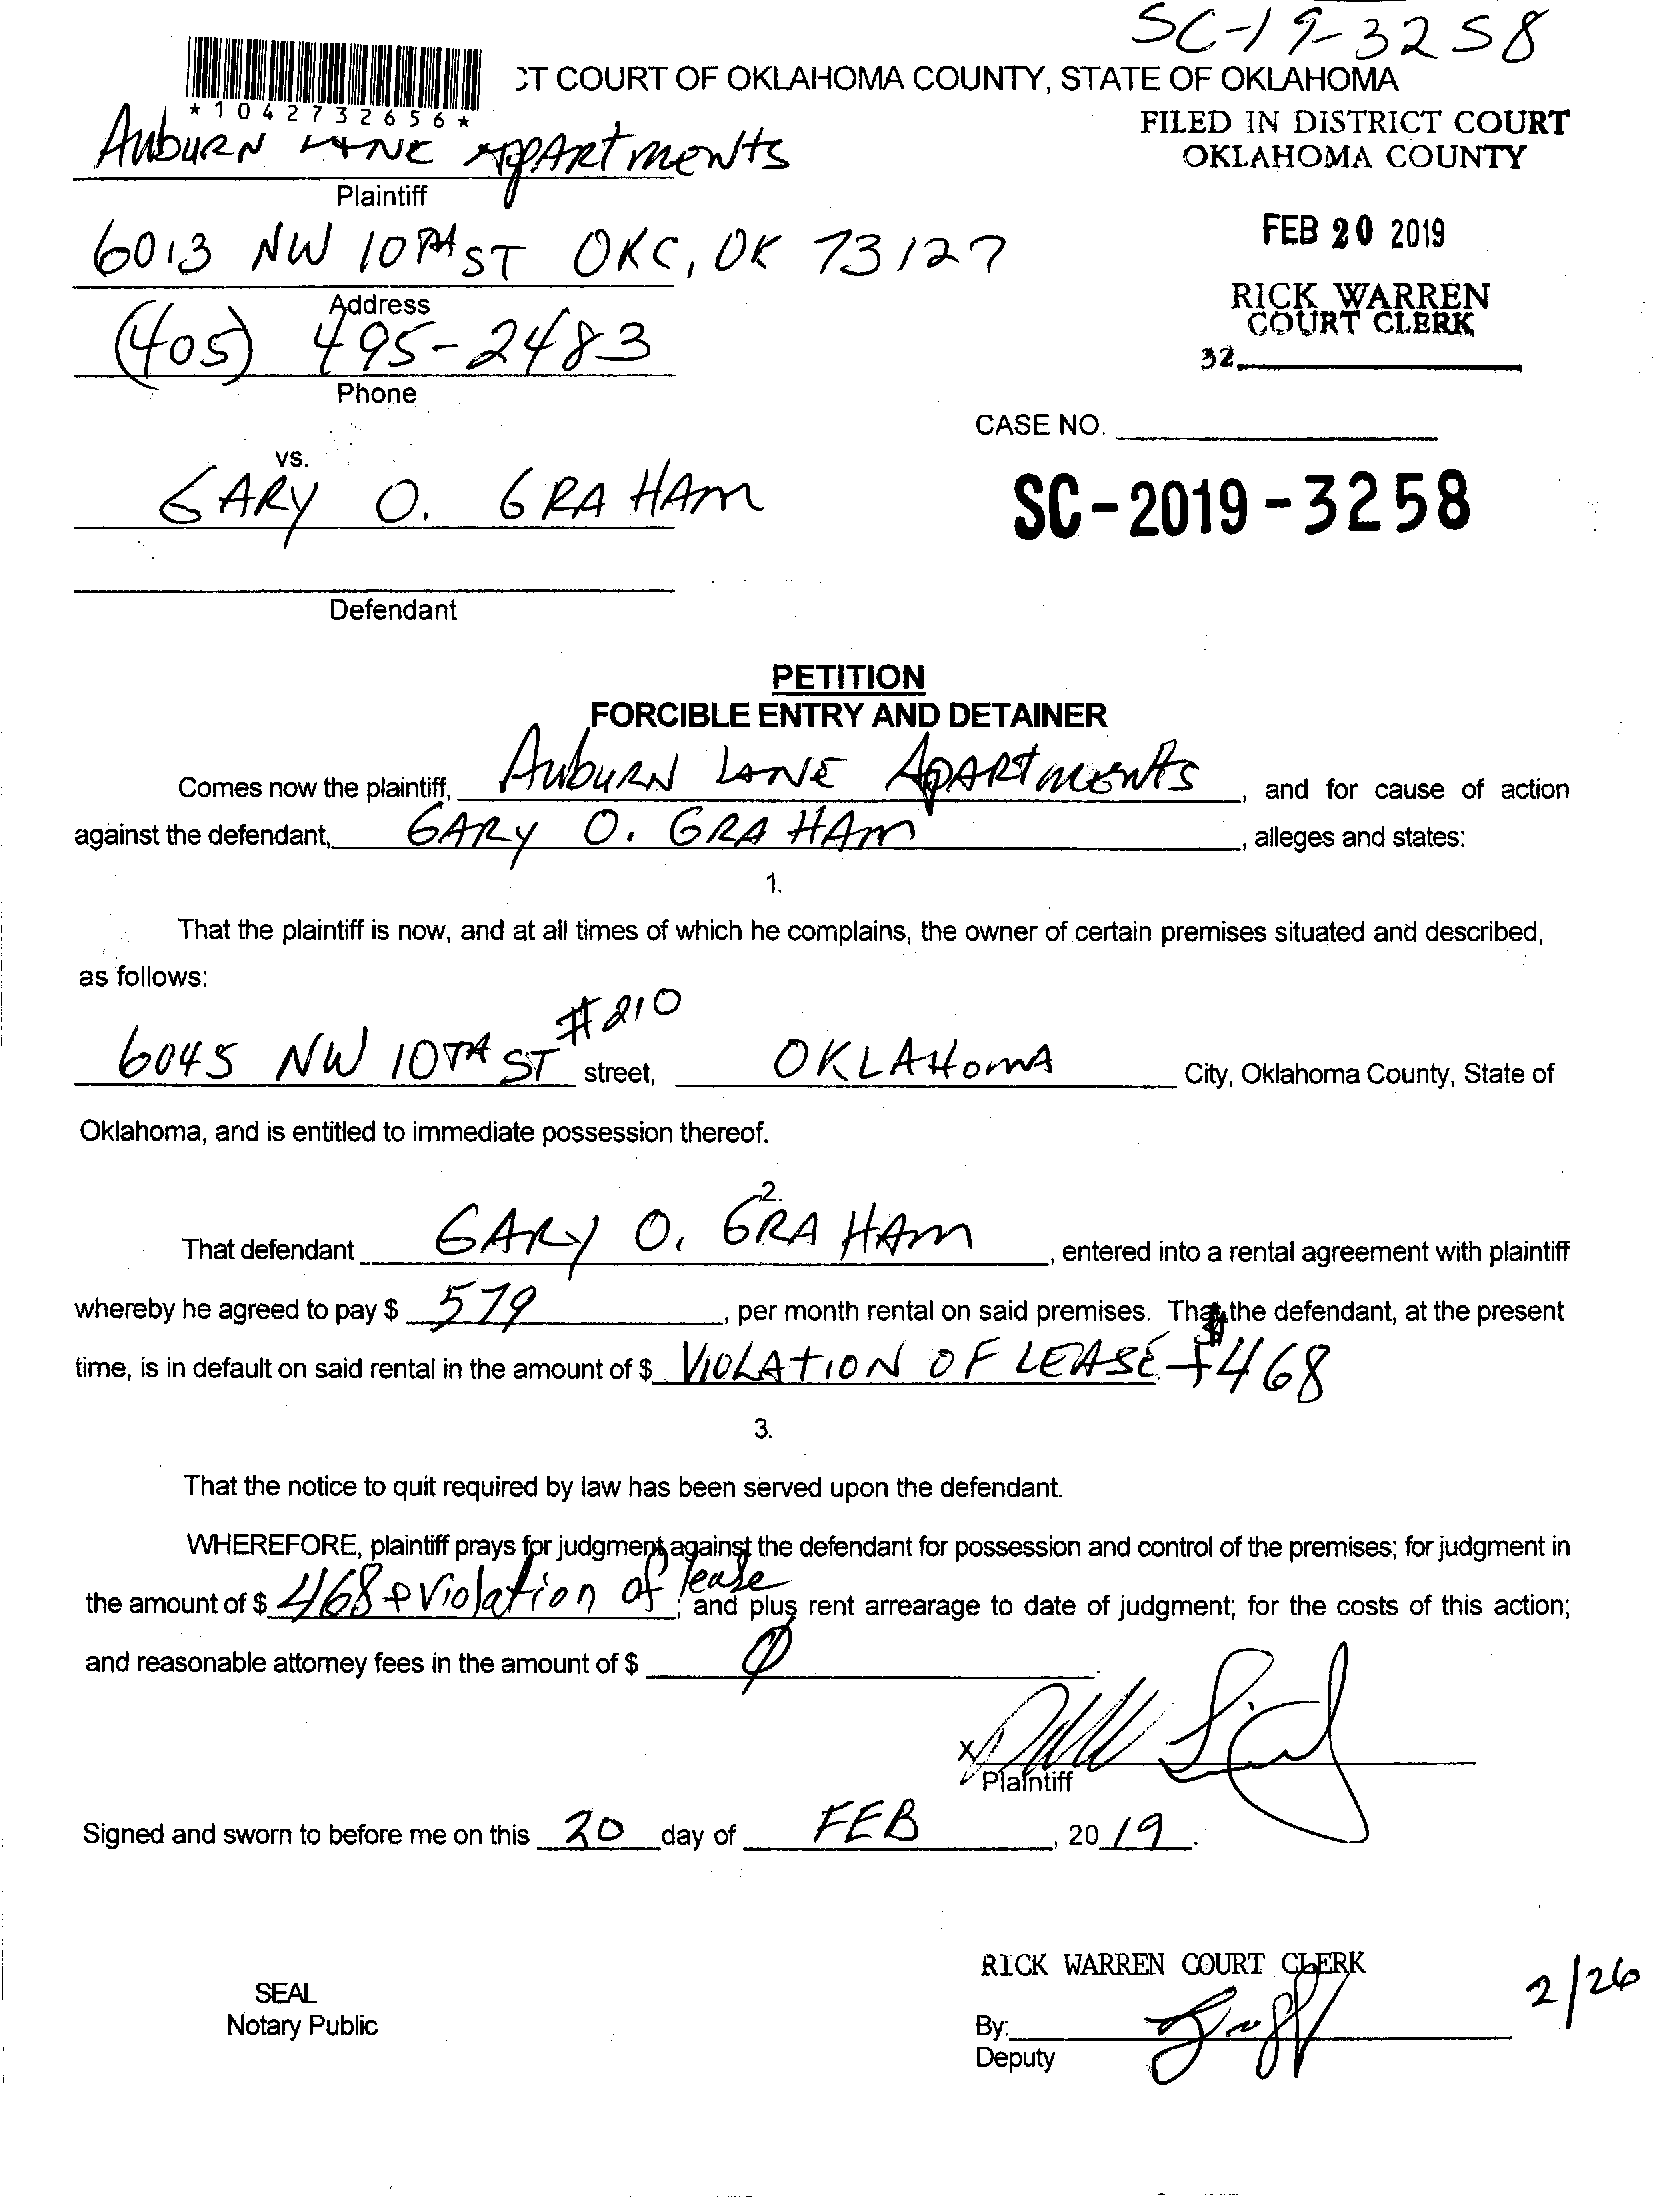 SC-19-3258
CT COURT OF OKLAHOMA COUNTY, STATE OF OKLAHOMA
*1042732656*
FILED IN DISTRICT COURT
OKLAHOMA COUNTY
AuburN LANE APPARtmeNts
Plaintiff
FEB 20 2019
6013 NW 10TH ST OKC, OK 73127
Address
RICK WARREN
COURT CLERK
(405) 495-2483
32
Phone
CASE NO.
vs.
GARY O. GRAHAm
SC-2019-3258
Defendant
PETITION
FORCIBLE ENTRY AND DETAINER
Comes now the plaintiff, AuburN LANE APARtmeNts, and for cause of action
against the defendant, GARY O. GRAHAm, alleges and states:
1.
That the plaintiff is now, and at all times of which he complains, the owner of certain premises situated and described,
as follows:
6045 NW 10TH ST #210 street, OKLAHomA City, Oklahoma County, State of
Oklahoma, and is entitled to immediate possession thereof.
2.
That defendant GARY O. GRAHAm, entered into a rental agreement with plaintiff
whereby he agreed to pay $ 579, per month rental on said premises. That the defendant, at the present
time, is in default on said rental in the amount of $ VIOLATION OF LEASE + $468
3.
That the notice to quit required by law has been served upon the defendant.
WHEREFORE, plaintiff prays for judgment against the defendant for possession and control of the premises; for judgment in
the amount of $ 468 + Violation of lease; and plus rent arrearage to date of judgment; for the costs of this action;
and reasonable attorney fees in the amount of $ Ø
X
Plaintiff
Signed and sworn to before me on this 20 day of FEB, 2019.
RICK WARREN COURT CLERK
2/26
SEAL
Notary Public
By:
Deputy